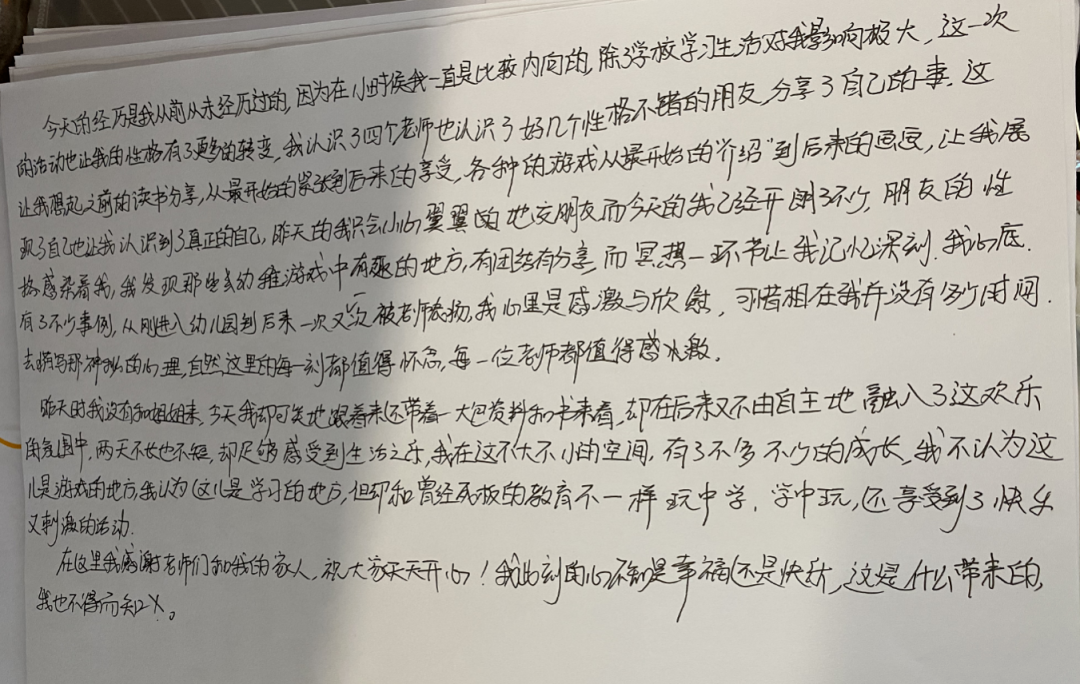 今天的经历是我从前从未经历过的,因为在小时候我一直是比较内向的,除了学校学习生活对我影响极大,这一次
的活动也让我的性格有了更多的转变,我认识了四个老师也认识了好几个性格不错的朋友,分享了自己的事.这
让我想起之前的读书分享,从最开始的紧张到后来的享受,各种的游戏从最开始的“介绍”到后来的,让我展
现了自己也让我认识到了真正的自己,昨天的我只会小心翼翼的地交朋友而今天的我已经开朗了不少,朋友的性
格感染着我,我发现那些幼稚游戏中有趣的地方,有团结有分享,而冥想一环节让我记忆深刻.我心底.
有了不少事例,从刚进入幼儿园到后来一次又一次被老师表扬,我心里是感激与欣慰,可惜相在我并没有多少时间.
去描写那神秘的心理,自然这里的每一刻都值得怀念,每一位老师都值得感激.
昨天时我没有和姐姐来,今天我却可笑地跟着来还带着一大包资料和书来看,却在后来又不由自主地融入了这欢乐
围中,两天不长也不短,却足够感受到生活之乐,我在这不大不小的空间,有了不多不少的成长,我不认为这
儿是游戏的地方,我认为这儿是学习的地方,但却和曾经死板的教育不一样玩中学,学中玩,还享受到了快乐
又刺激的活动.
在这里我感谢老师们和我的家人,祝大家天天开心!我此刻的心不知是幸福还是快乐,这是什么带来的,
我也不得而知以。